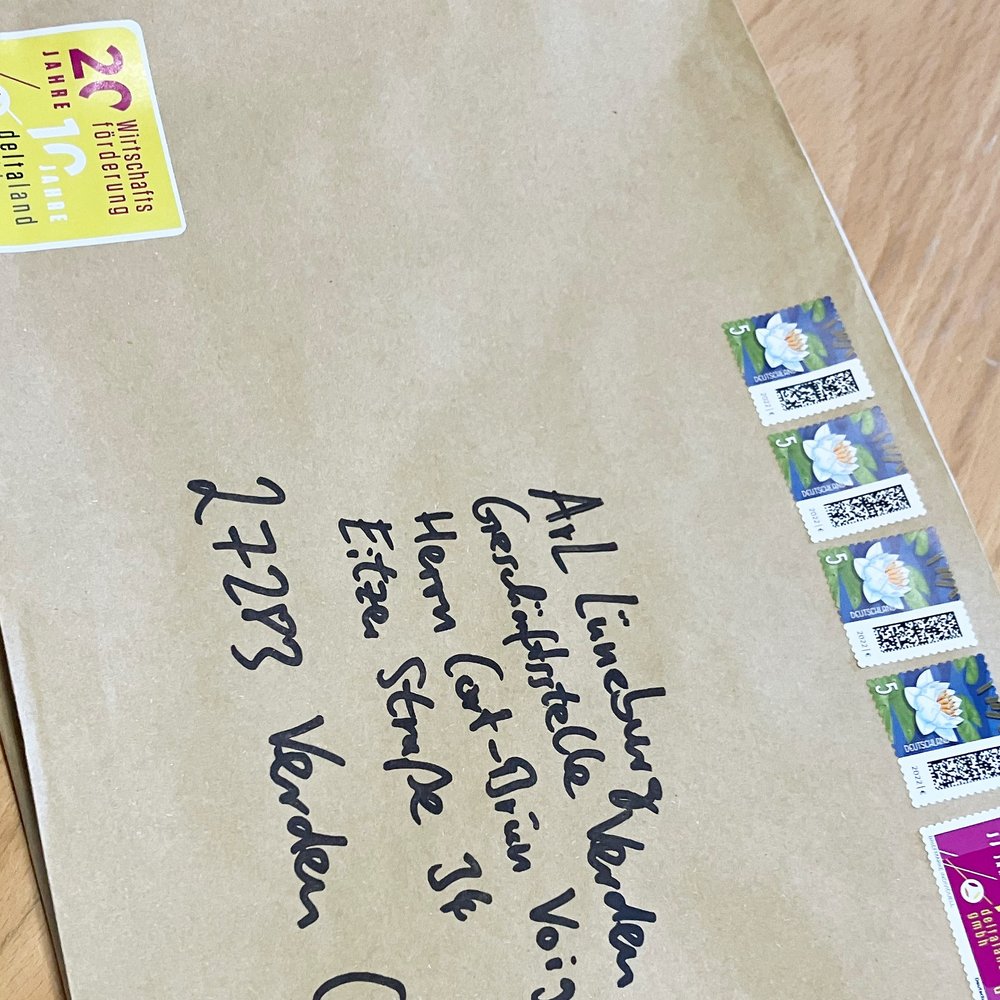 20
JAHRE
Wirtschafts
förderung
10 JAHRE
deltaland
5
DEUTSCHLAND
2022 | €
5
DEUTSCHLAND
2022 | €
5
DEUTSCHLAND
2022 | €
5
DEUTSCHLAND
2022 | €
deltaland
gmbh
ArL Lüneburg Verden
Geschäftsstelle Verden
Herrn Cort-Brün Voig
Eitzer Straße 34
27283 Verden (